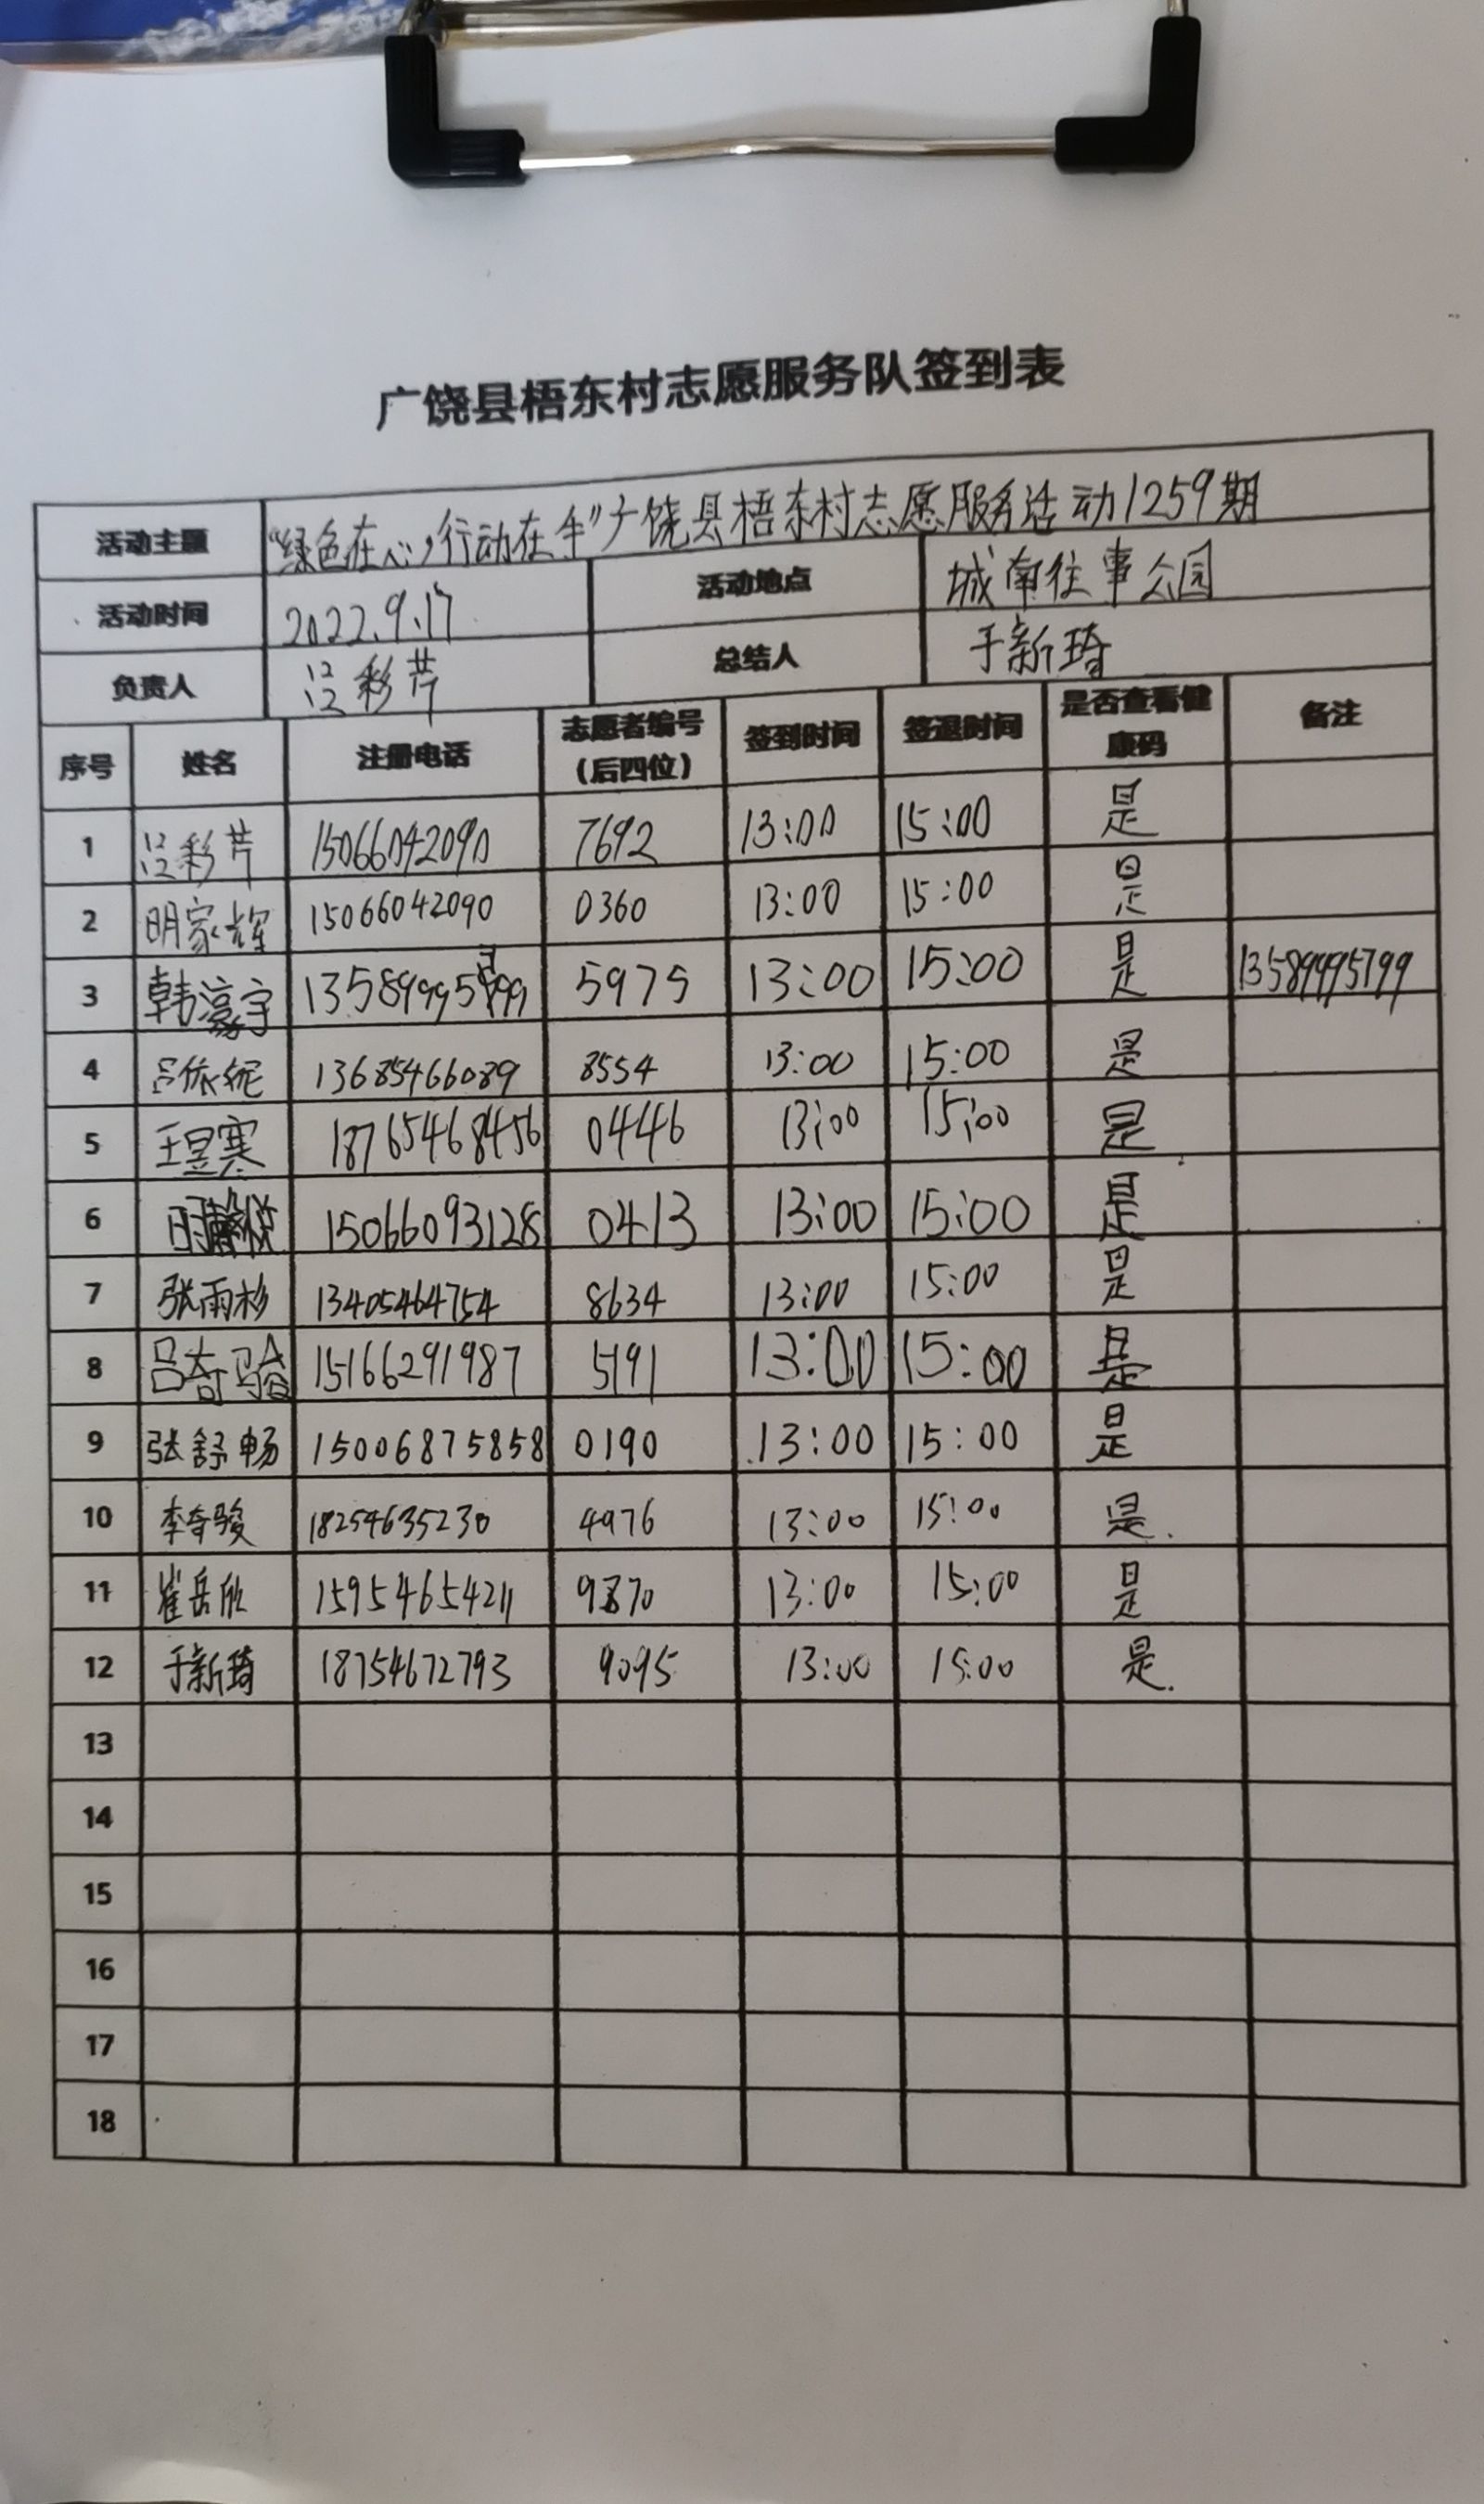 广饶县梧东村志愿服务队签到表
活动主题 "绿色在心，行动在手"广饶县梧东村志愿服务活动1259期
活动时间 2022.9.17 活动地点 城南往事公园
负责人 吕彩芹 总结人 于新琦
序号 姓名 注册电话 志愿者编号（后四位） 签到时间 签退时间 是否查看健康码 备注
1 吕彩芹 15066042090 7692 13:00 15:00 是
2 明家辉 15066042090 0360 13:00 15:00 是
3 韩濠宇 5975 13:00 15:00 是 13589995799
4 吕依妮 13685466089 8554 13:00 15:00 是
5 王昱寒 18765468456 0446 13:00 15:00 是
6 15066093128 0413 13:00 15:00 是
7 张雨杉 13405464754 8634 13:00 15:00 是
8 吕奇骏 15166291987 5191 13:00 15:00 是
9 张舒畅 15006875858 0190 13:00 15:00 是
10 李奇骏 18254635230 4976 13:00 15:00 是.
11 崔岳欣 15954654211 9870 13:00 15:00 是
12 于新琦 18754672793 9095 13:00 15:00 是.
13
14
15
16
17
18